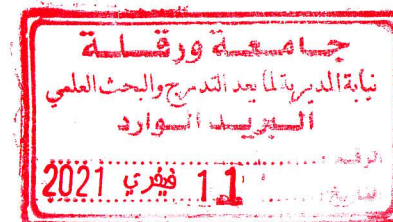 جامعة ورقلة
نيابة المديرية لما بعد التدرج والبحث العلمي
البريد الوارد
الرقم :
التاريخ : 11 فيفري 2021